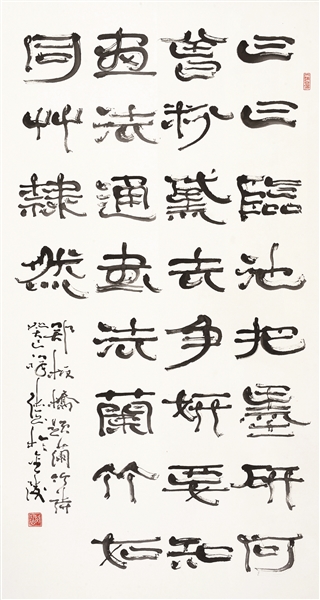 日日臨池把墨研何
曾粉黛去争妍要知
畫法通書法蘭竹如
同艸隸然
鄭板橋題蘭竹詩
癸巳於金陵